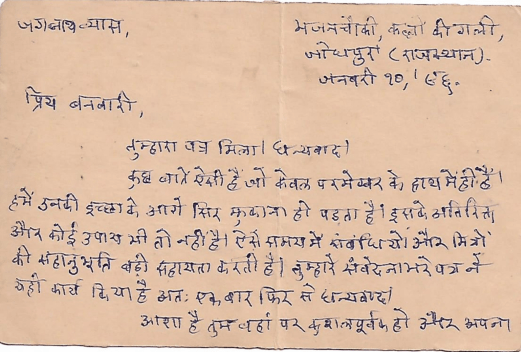 जगन्नाथ व्यास,
भजनचौकी, कल्लों की गली,
जोधपुर (राजस्थान).
जनवरी १०,
प्रिय बनवारी,
तुम्हारा पत्र मिला। धन्यवाद।
कुछ बातें ऐसी हैं जो केवल परमेश्वर के हाथ में ही हैं।
हमें उनकी इच्छा के आगे सिर झुकाना ही पड़ता है। इसके अतिरिक्त
और कोई उपाय भी तो नहीं है। ऐसे समय में संबंधियों और मित्रों
की सहानुभूति बड़ी सहायता करती है। तुम्हारे संवेदना भरे पत्र ने
यही कार्य किया है अतः एक बार फिर से धन्यवाद।
आशा है तुम वहां पर कुशलपूर्वक हो और अपना